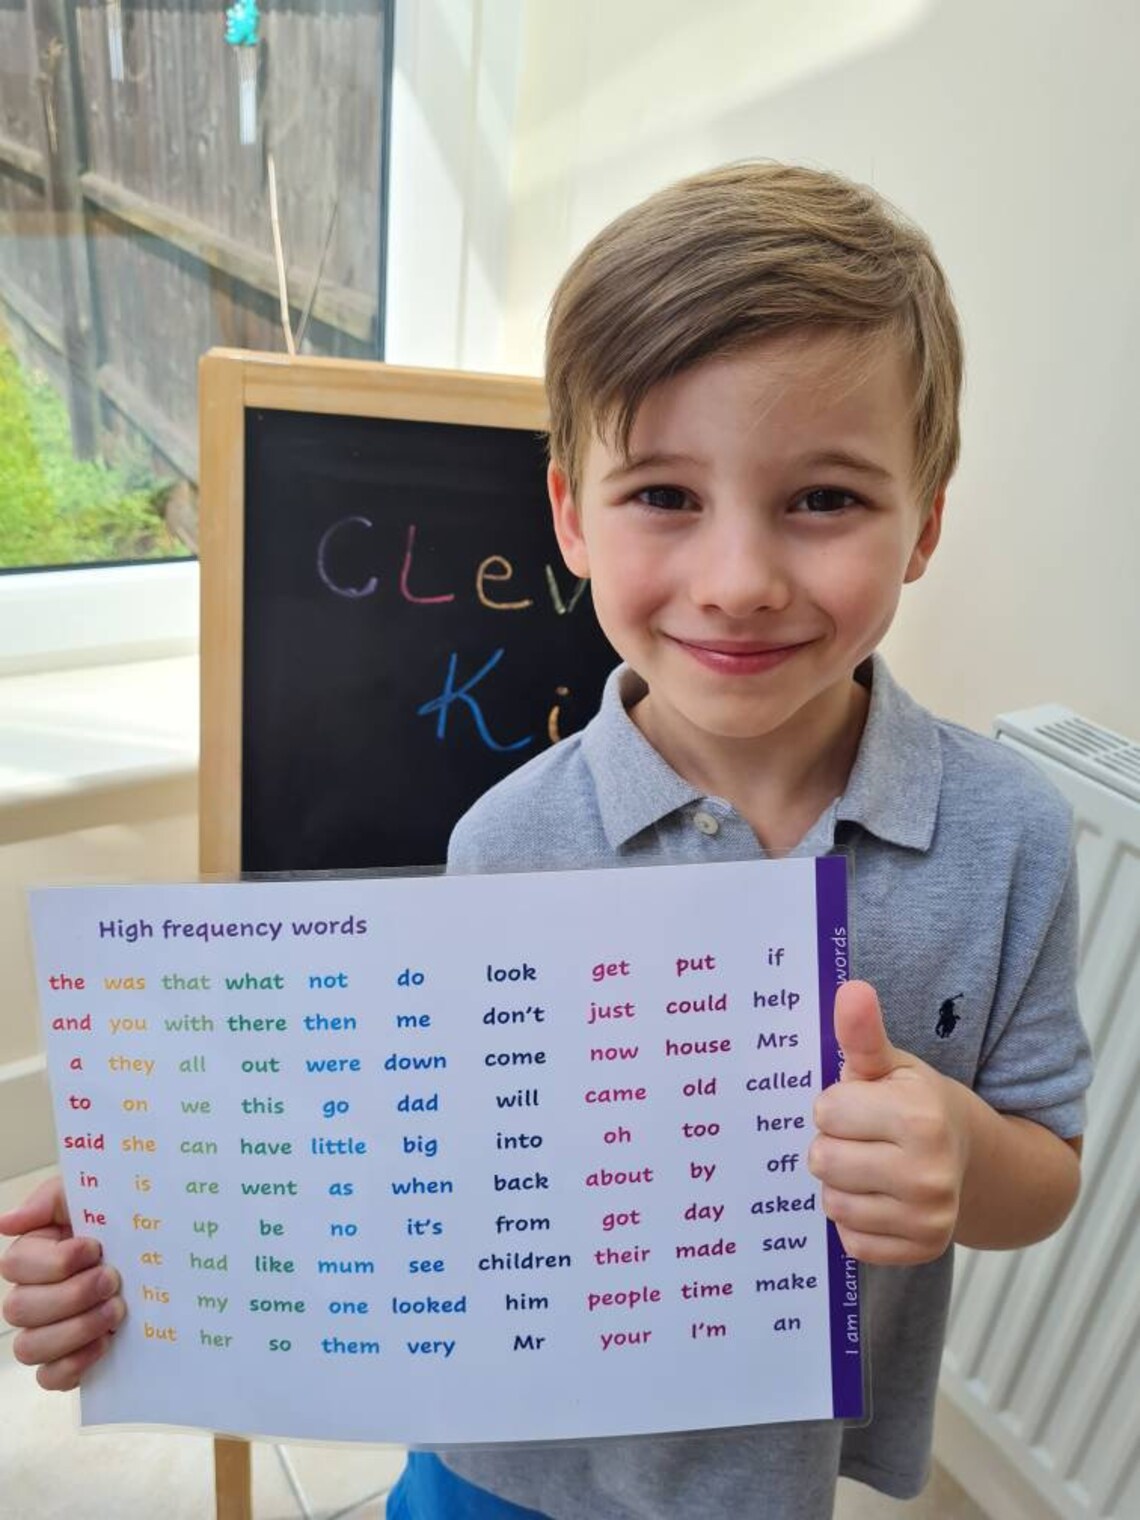 CLev
Ki
High frequency words
the was that what not do look get put if
and you with there then me don't just could help
a they all out were down come now house Mrs
to on we this go dad will came old called
said she can have little big into oh too here
in is are went as when back about by off
he for up be no it's from got day asked
at had like mum see children their made saw
his my some one looked him people time make
but her so them very Mr your I'm an
I am learni words